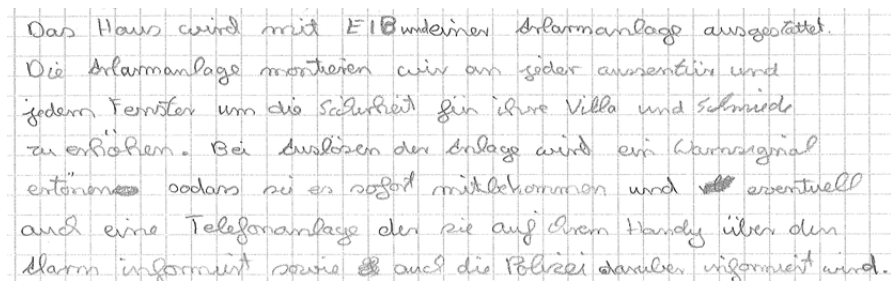 Das Haus wird mit EIB undeiner Arlarmanlage ausgestattet.
Die Arlarmanlage montieren wir an jeder aussentür und
jedem Fenster um die Sicherheit für ihre Villa und Schmiede
zu erhöhen. Bei Auslösen der Anlage wird ein Warnsignal
ertönen sodass sei es sofort mitbekommen und eventuell
auch eine Telefonanlage der sie auf ihrem Handy über den
Alarm informiert sowie auch die Polizei darüber informiert wird.